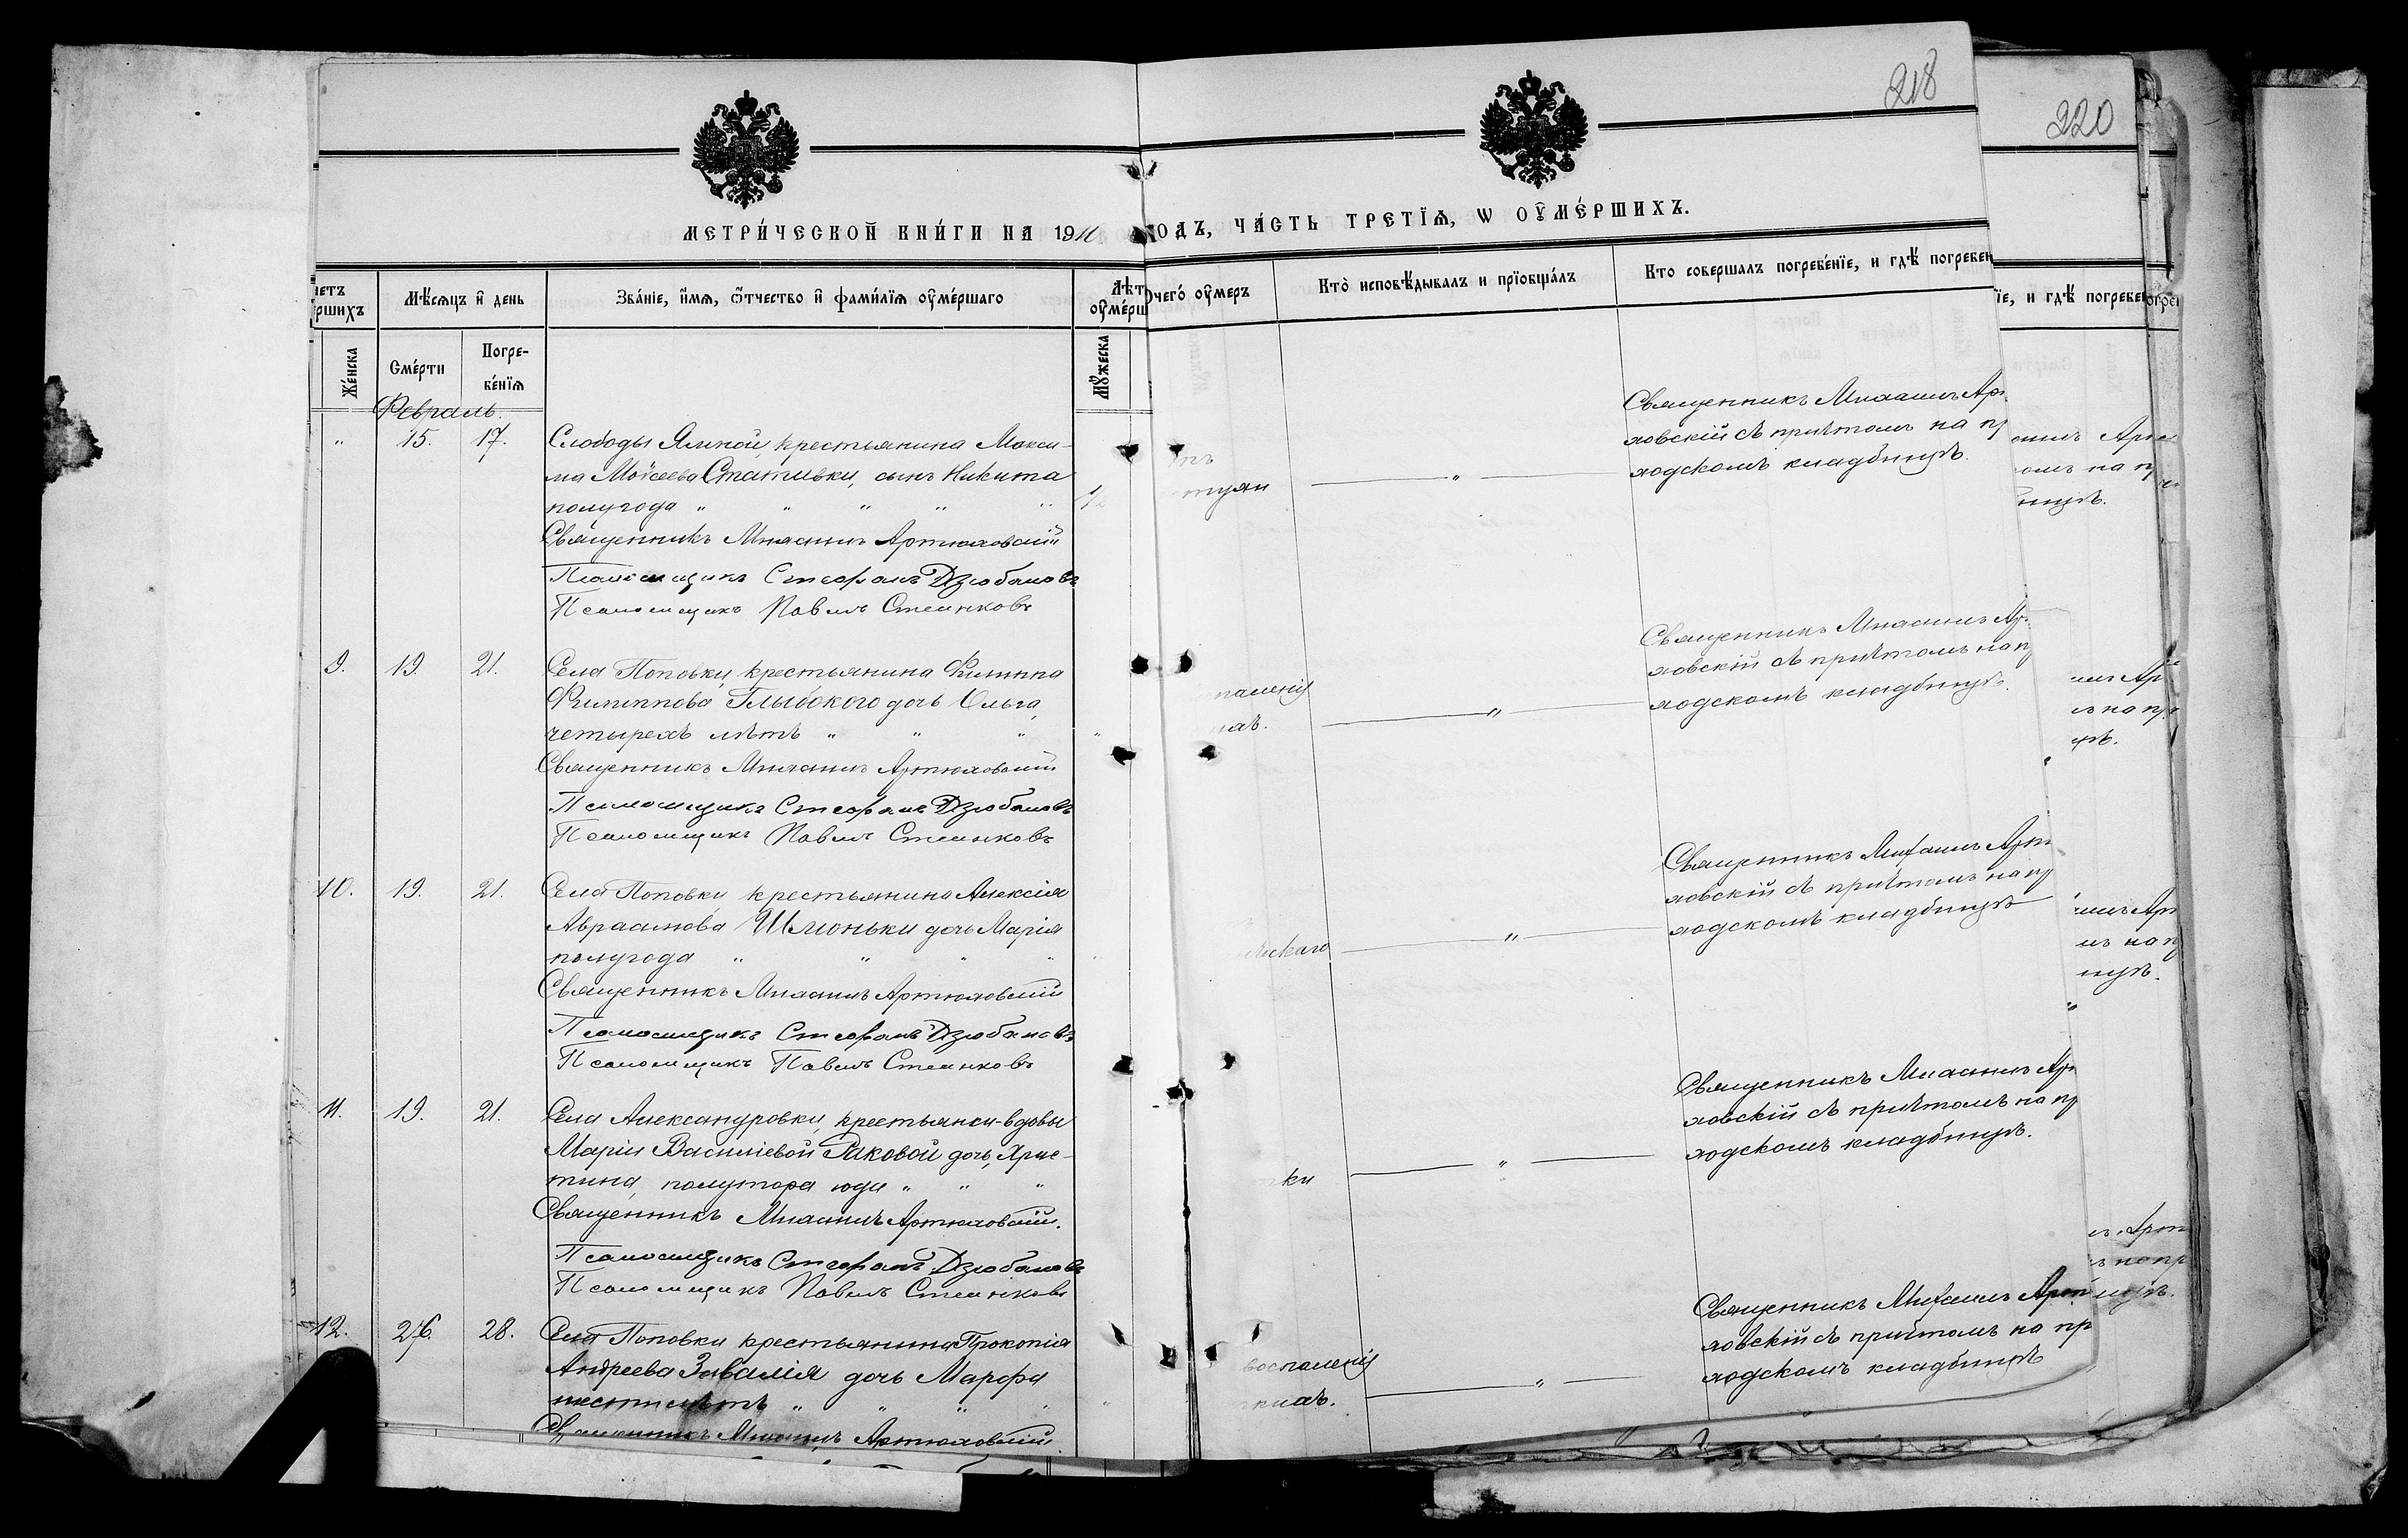 218
220
МЕТРИ́ЧЕСКОЙ КНИ́ГИ НА 1910
ОДЪ, ЧА́СТЬ ТРЕТІѦ, Ѡ ОУМЕ́РШИХЪ.
Мѣсѧцъ и день
Зва́ніе, имѧ, ѻтчество и фами́лїѧ оуме́ршаго
Лѣт
оуме́рш
чего́ оумеръ
Кто̀ исповѣдывалъ и прїобща́лъ
Кто совершалъ погребе́нїе, и гдѣ погребен
їе, и гдѣ погребен
етъ
ршихъ
Же́нска
Сме́рти
Погре-
бе́нїѧ
Мужеска
Февраль.
" 15. 17. Слободы Ямной, крестьянина Макси-
ма Моѵсеева Стативки, сынъ Никита
полугода " " " " "
1/2
Священникъ Михаилъ Артюховскій
Псаломщикъ Стефанъ Дзюбановъ
Псаломщикъ Павелъ
Священникъ Михаилъ Арт
ховскій съ причтомъ на пр
ходскомъ кладбищѣ.
9. 19. 21. Села Поповки, крестьянина Филиппа
Филиппова Глыбокого дочь Ольга,
четырехъ лѣтъ " " "
Священникъ Михаилъ Артюховскій
Псаломщикъ Стефанъ Дзюбановъ
Псаломщикъ Павелъ
паленія
Священникъ Михаилъ Ар
ховскій съ причтомъ на пр
ходскомъ кладбищѣ.
10. 19. 21. Села Поповки крестьянина Алексія
Авраамова Шмоньки дочь Марія
полугода " " " "
Священникъ Михаилъ Артюховскій
Псаломщикъ Стефанъ Дзюбановъ
Псаломщикъ Павелъ
Священникъ Михаилъ Арт
ховскій съ причтомъ на пр
ходскомъ кладбищѣ
11. 19. 21. Села Александровки, крестьянки-вдовы
Маріи Василіевой Раковой дочь, Хрис-
тина, полутора года " " "
Священникъ Михаилъ Артюховскій.
Псаломщикъ Стефанъ Дзюбановъ
Псаломщикъ Павелъ
Священникъ Михаилъ Арт
ховскій съ причтомъ на пр
ходскомъ кладбищѣ.
12. 26. 28. Села Поповки крестьянина Прокопія
Андреева Завалія дочь Марфа
шести лѣтъ " " " "
Священникъ Михаилъ Артюховскій
воспаленія
Священникъ Михаилъ Арт
ховскій съ причтомъ на пр
ходскомъ кладбищѣ